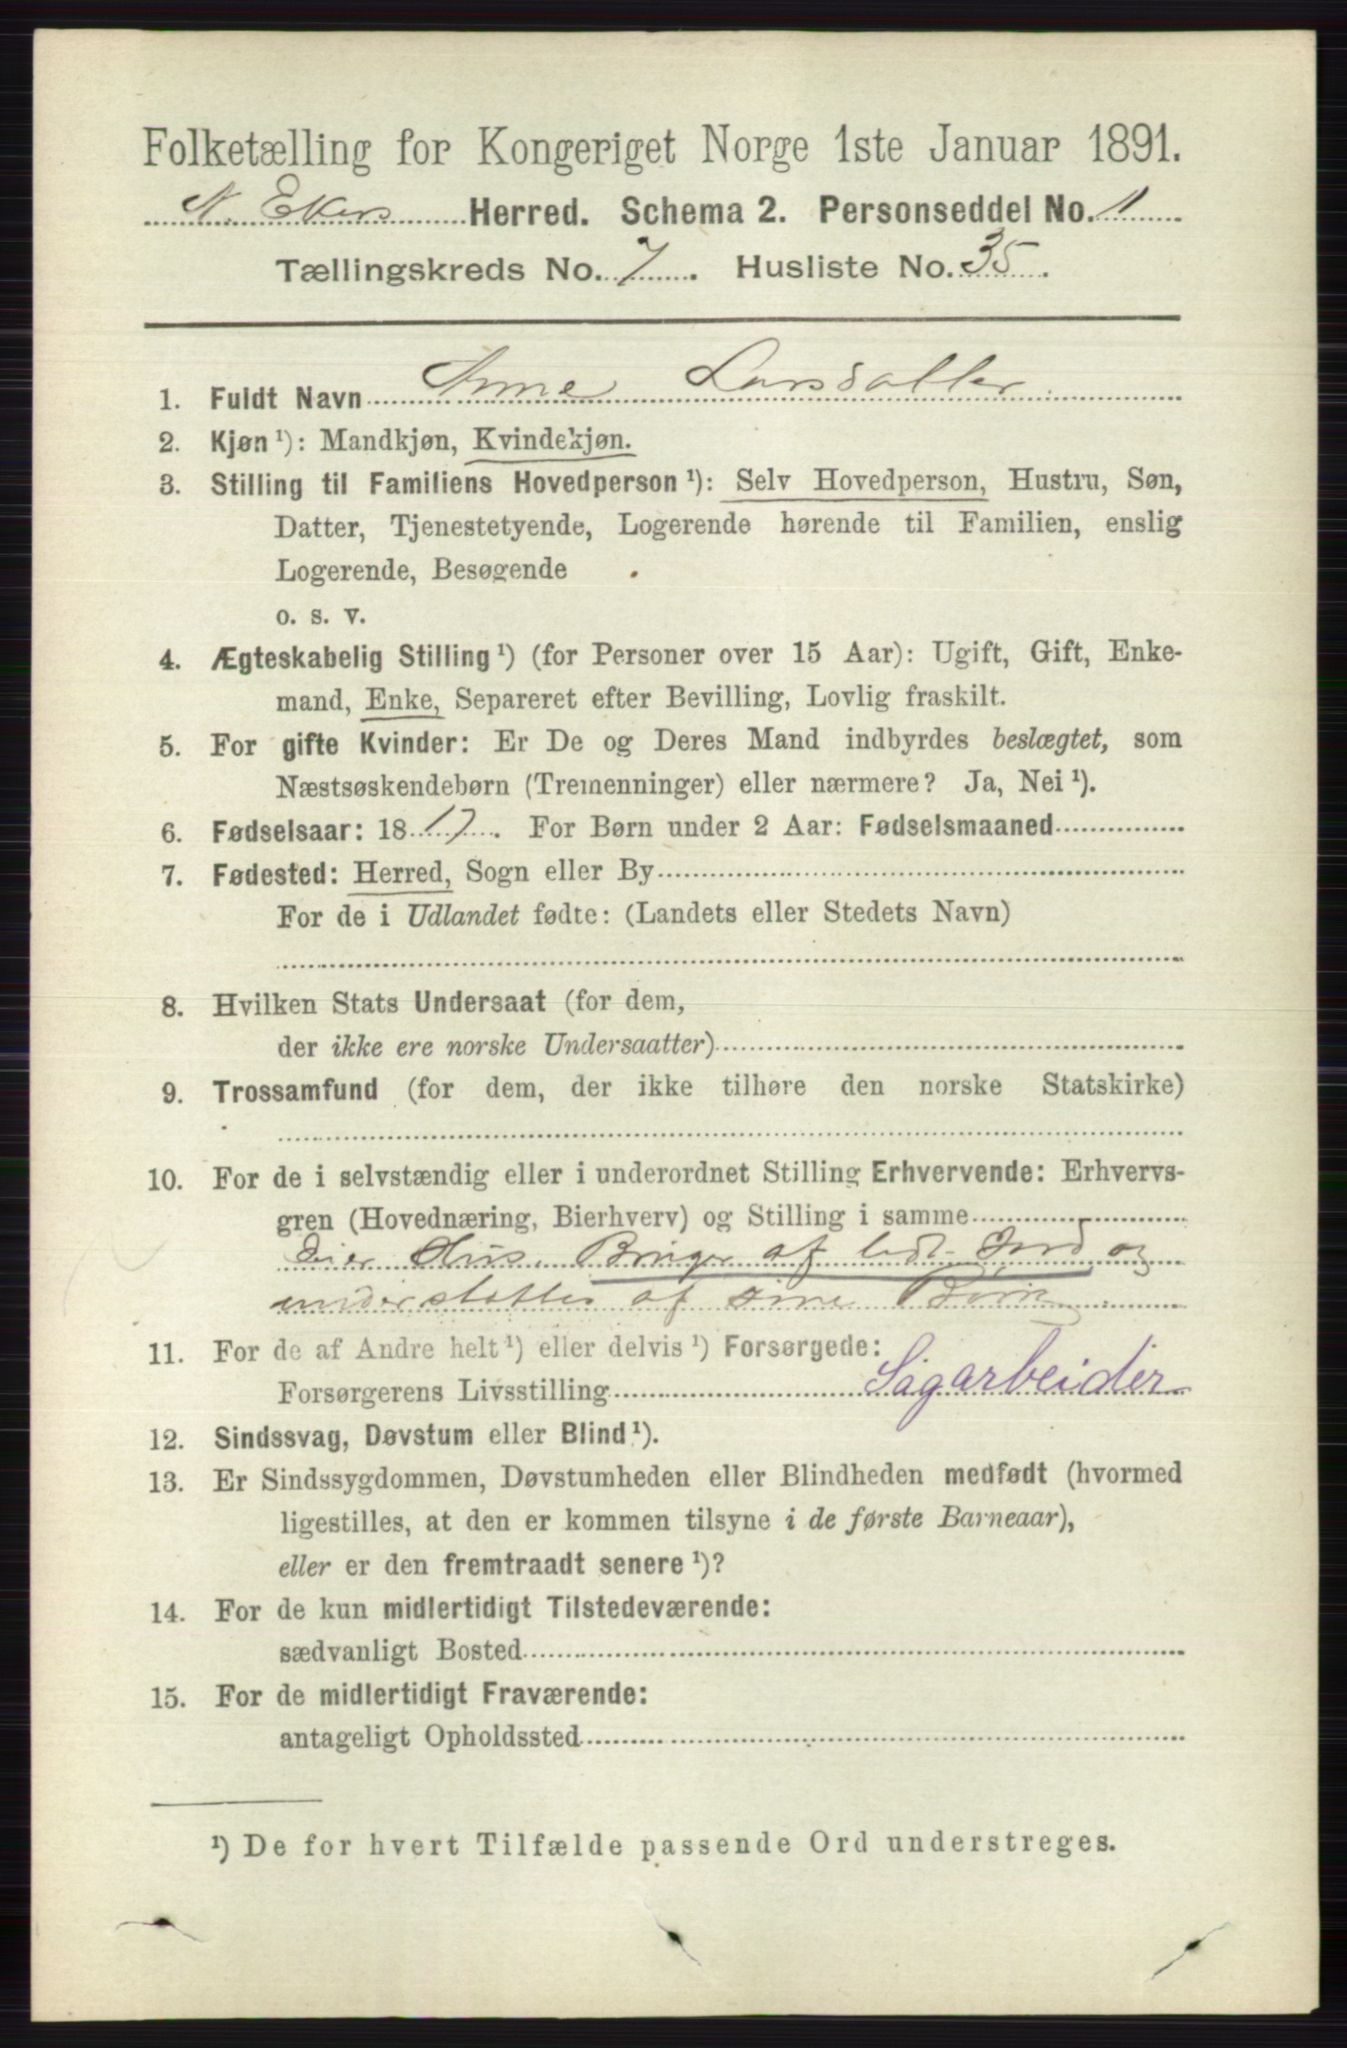 Folketælling for Kongeriget Norge 1ste Januar 1891.
N. Ekers Herred. Schema 2. Personseddel No. 1
Tællingskreds No. 7. Husliste No. 35.
1. Fuldt Navn Anne Larsdatter
2. Kjøn ¹): Mandkjøn, Kvindekjøn.
3. Stilling til Familiens Hovedperson ¹): Selv Hovedperson, Hustru, Søn,
Datter, Tjenestetyende, Logerende hørende til Familien, enslig
Logerende, Besøgende
o. s. v.
4. Ægteskabelig Stilling ¹) (for Personer over 15 Aar): Ugift, Gift, Enke-
mand, Enke, Separeret efter Bevilling, Lovlig fraskilt.
5. For gifte Kvinder: Er De og Deres Mand indbyrdes beslægtet, som
Næstsøskendebørn (Tremenninger) eller nærmere? Ja, Nei ¹).
6. Fødselsaar: 1817. For Børn under 2 Aar: Fødselsmaaned
7. Fødested: Herred, Sogn eller By
For de i Udlandet fødte: (Landets eller Stedets Navn)
8. Hvilken Stats Undersaat (for dem,
der ikke ere norske Undersaatter)
9. Trossamfund (for dem, der ikke tilhøre den norske Statskirke)
10. For de i selvstændig eller i underordnet Stilling Erhvervende: Erhvervs-
gren (Hovednæring, Bierhverv) og Stilling i samme
Eier Hus. Bruger af lidt Jord og
understøttes af sine Børn
11. For de af Andre helt ¹) eller delvis ¹) Forsørgede:
Forsørgerens Livsstilling Sagarbeider
12. Sindssvag, Døvstum eller Blind ¹).
13. Er Sindssygdommen, Døvstumheden eller Blindheden medfødt (hvormed
ligestilles, at den er kommen tilsyne i de første Barneaar),
eller er den fremtraadt senere ¹)?
14. For de kun midlertidigt Tilstedeværende:
sædvanligt Bosted
15. For de midlertidigt Fraværende:
antageligt Opholdssted
¹) De for hvert Tilfælde passende Ord understreges.